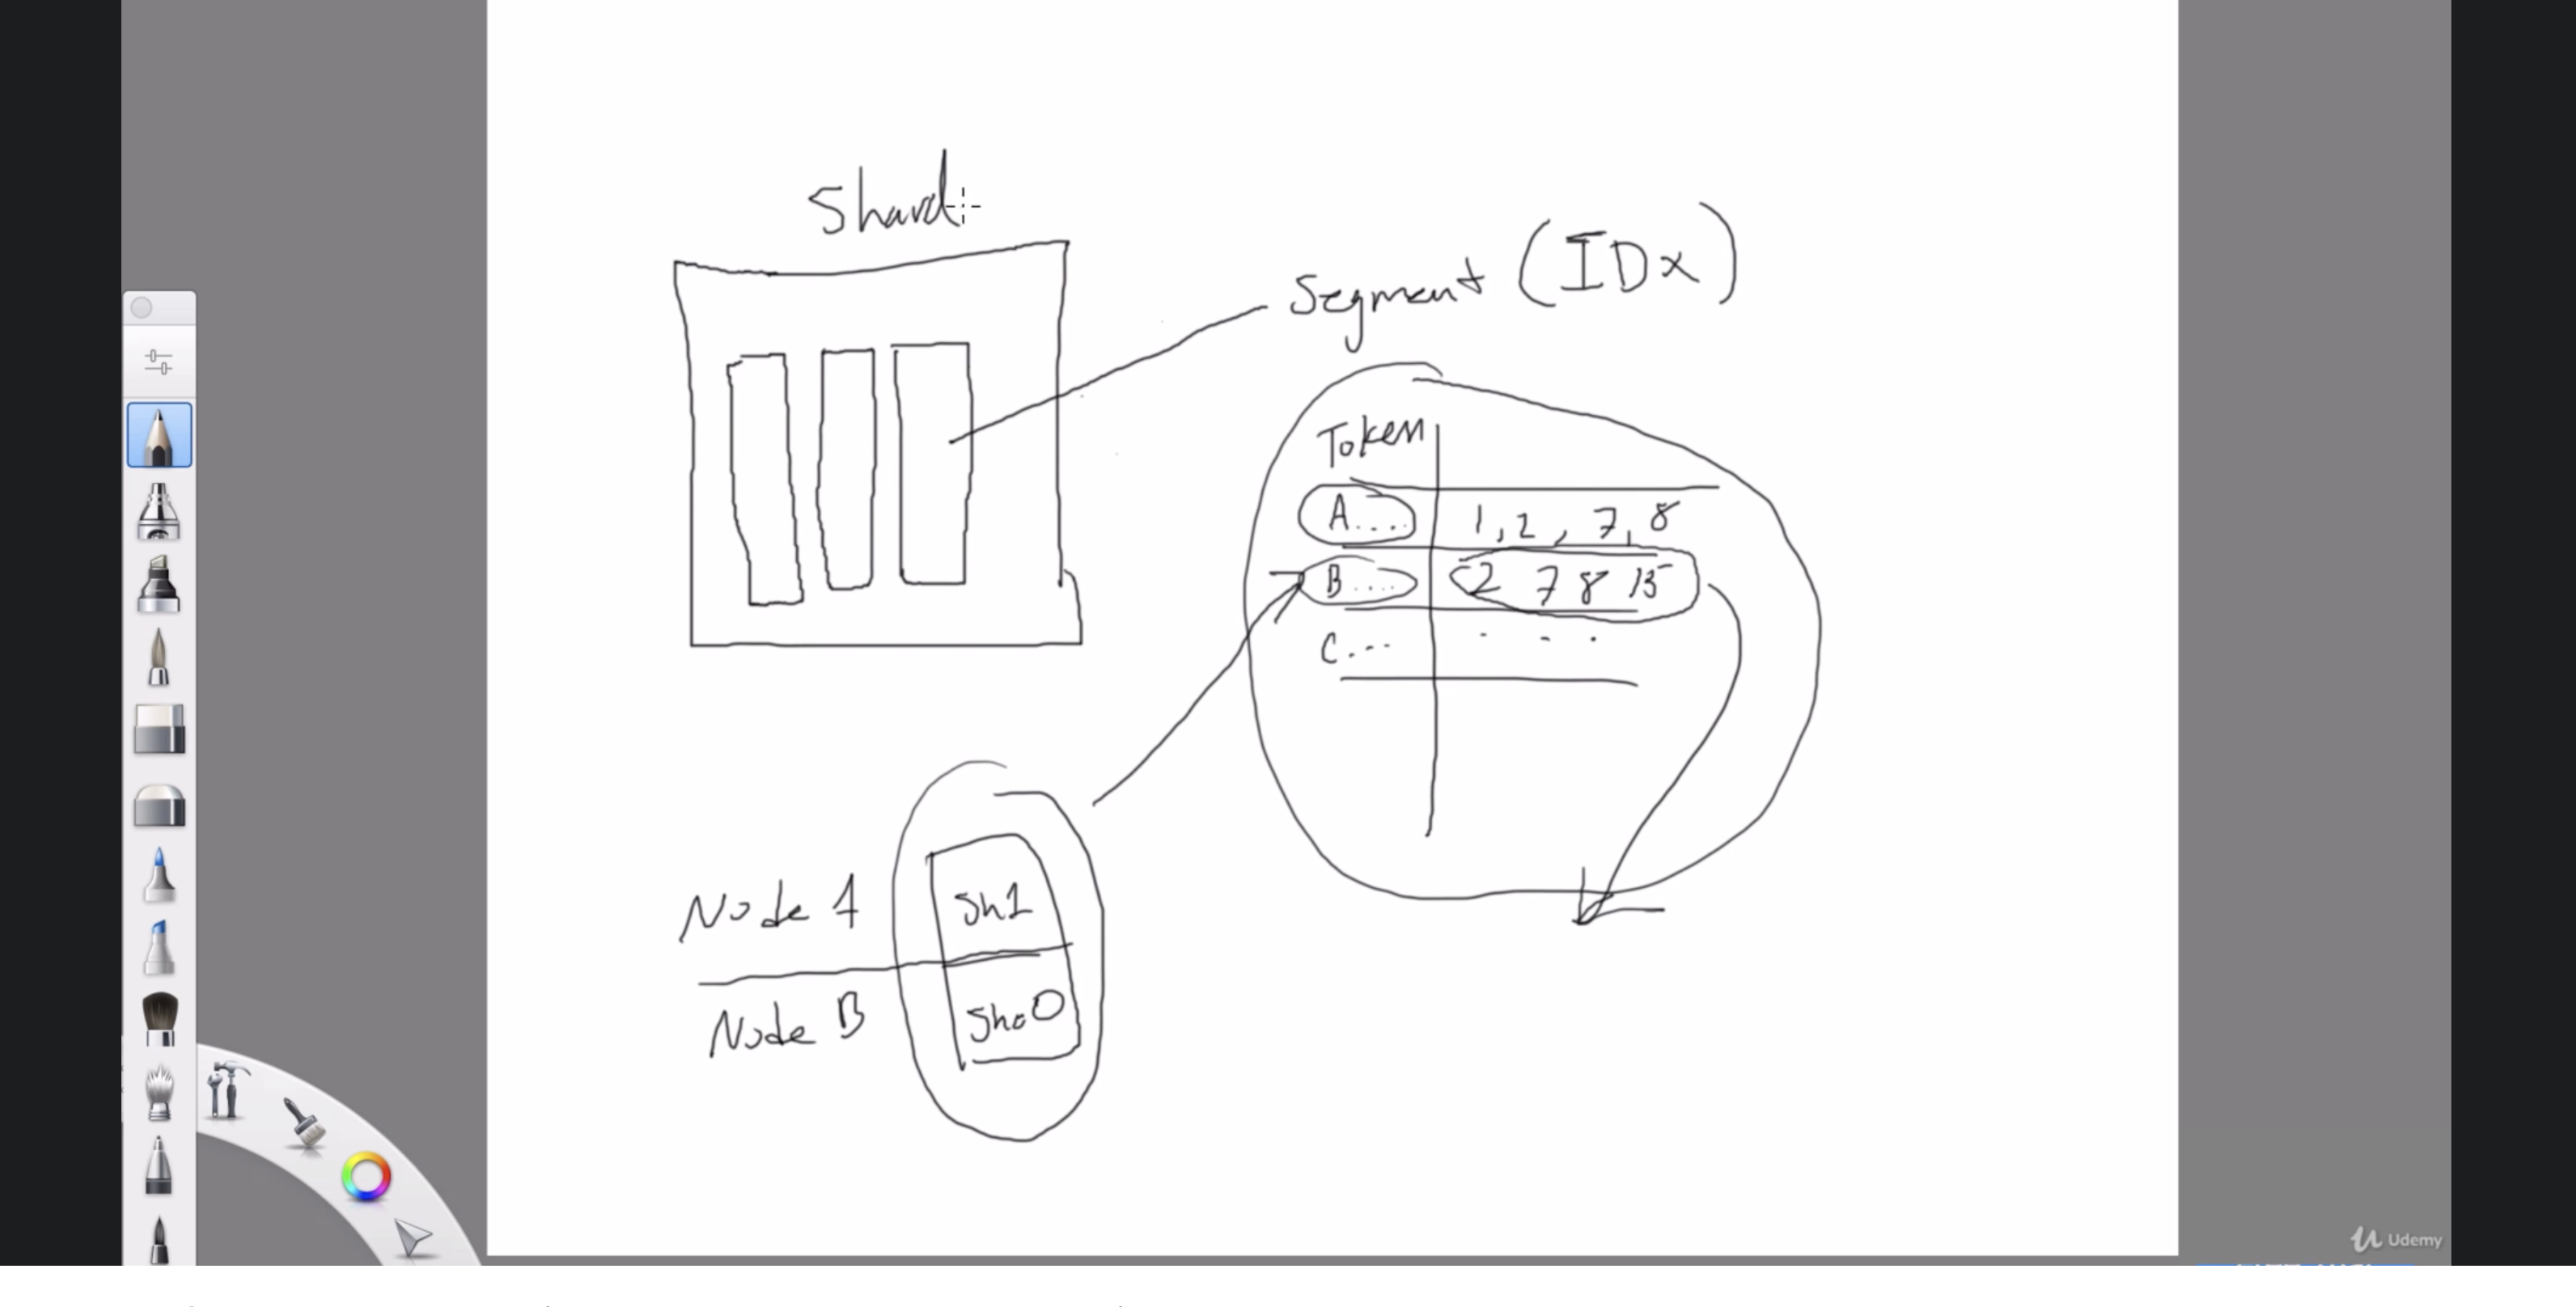 Shard
Segment (IDx)
Token
A.... 1, 2, 7, 8
B.... 2 7 8 15
C...
Node A Sh1
Node B Sh0
Udemy